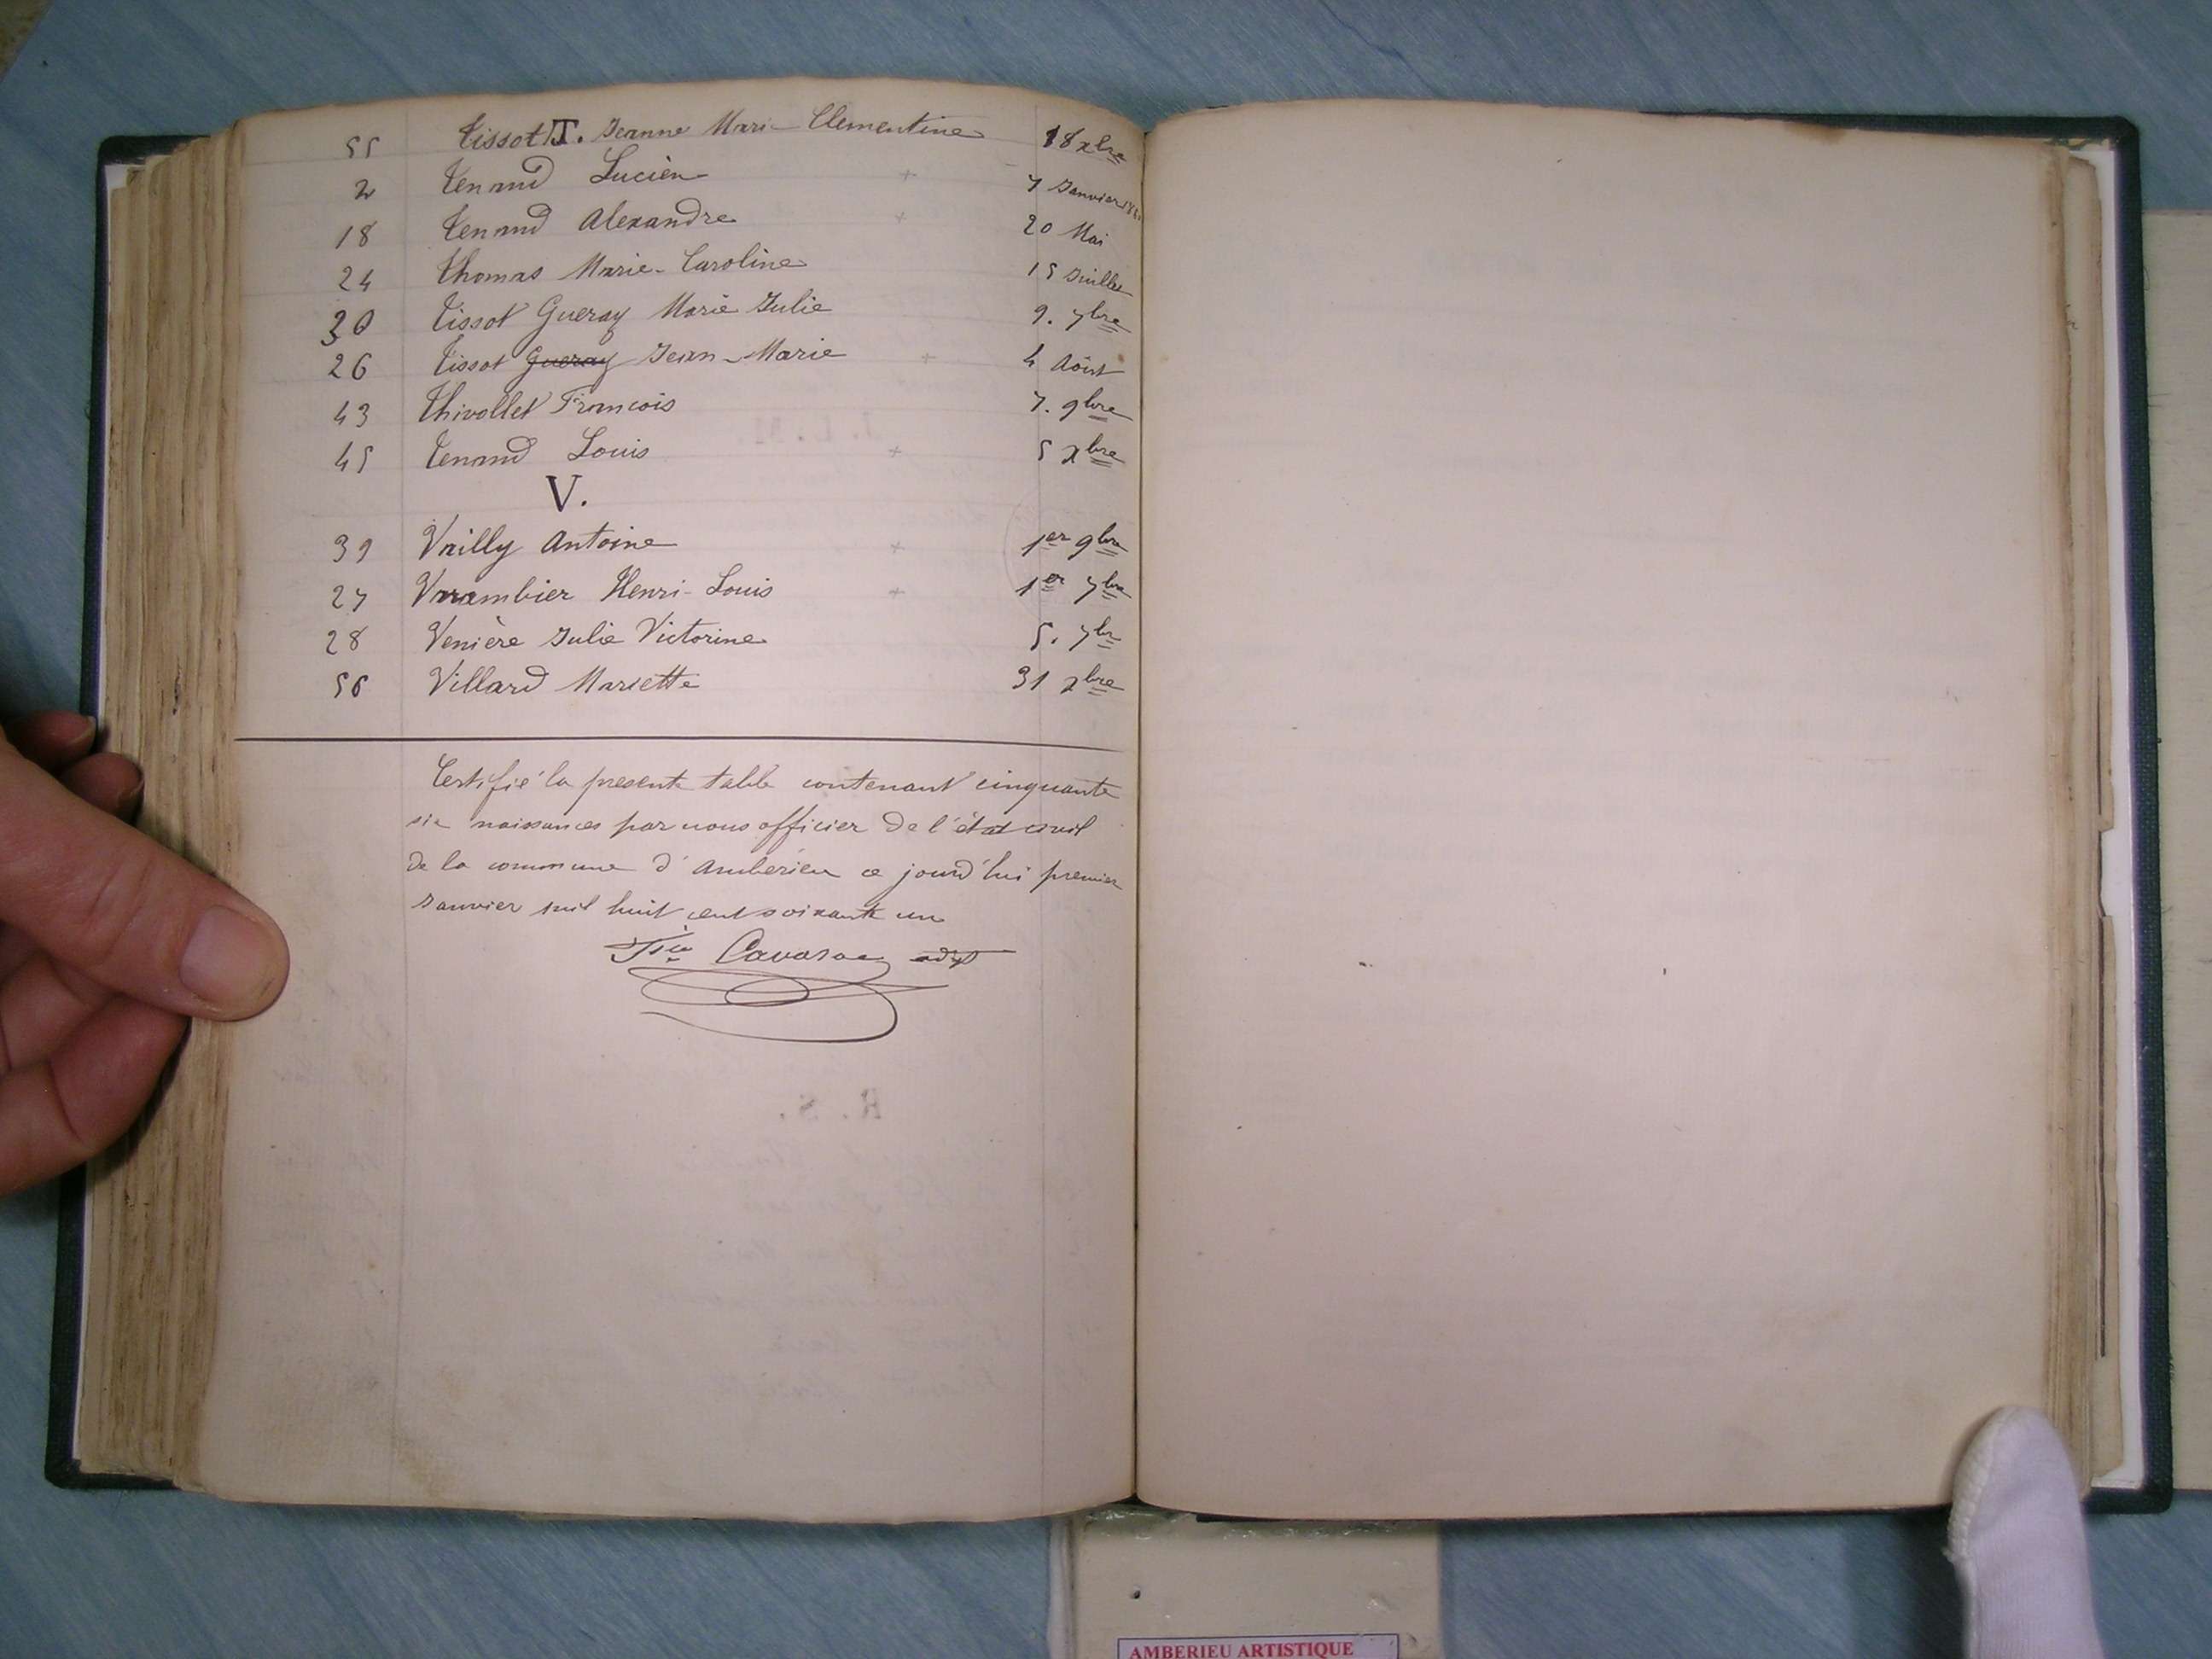 55 Tissot T. Jeanne Marie Clementine 18 xbre
2 Tenand Lucien + 7 Janvier
18 Tenand Alexandre + 20 Mai
24 Thomas Marie-Caroline 15 Juillet
30 Tissot Gueray Marie Julie 9. 7bre
26 Tissot Gueray Jean-Marie + 4 Aôut
43 Thivollet Francois 7. 9bre
45 Tenand Louis + 5 xbre
V.
39 Vailly Antoine + 1er 9bre
27 Varambier Henri-Louis + 1er 7bre
28 Venière Julie Victorine 5. 7bre
56 Villard Mariette 31 xbre
Certifié la presente table contenant cinquante
six naissances par nous officier de l'état civil
de la commune d'Ambérieu ce jourd'hui premier
Janvier mil huit cent soixante un
adjt
AMBERIEU ARTISTIQUE